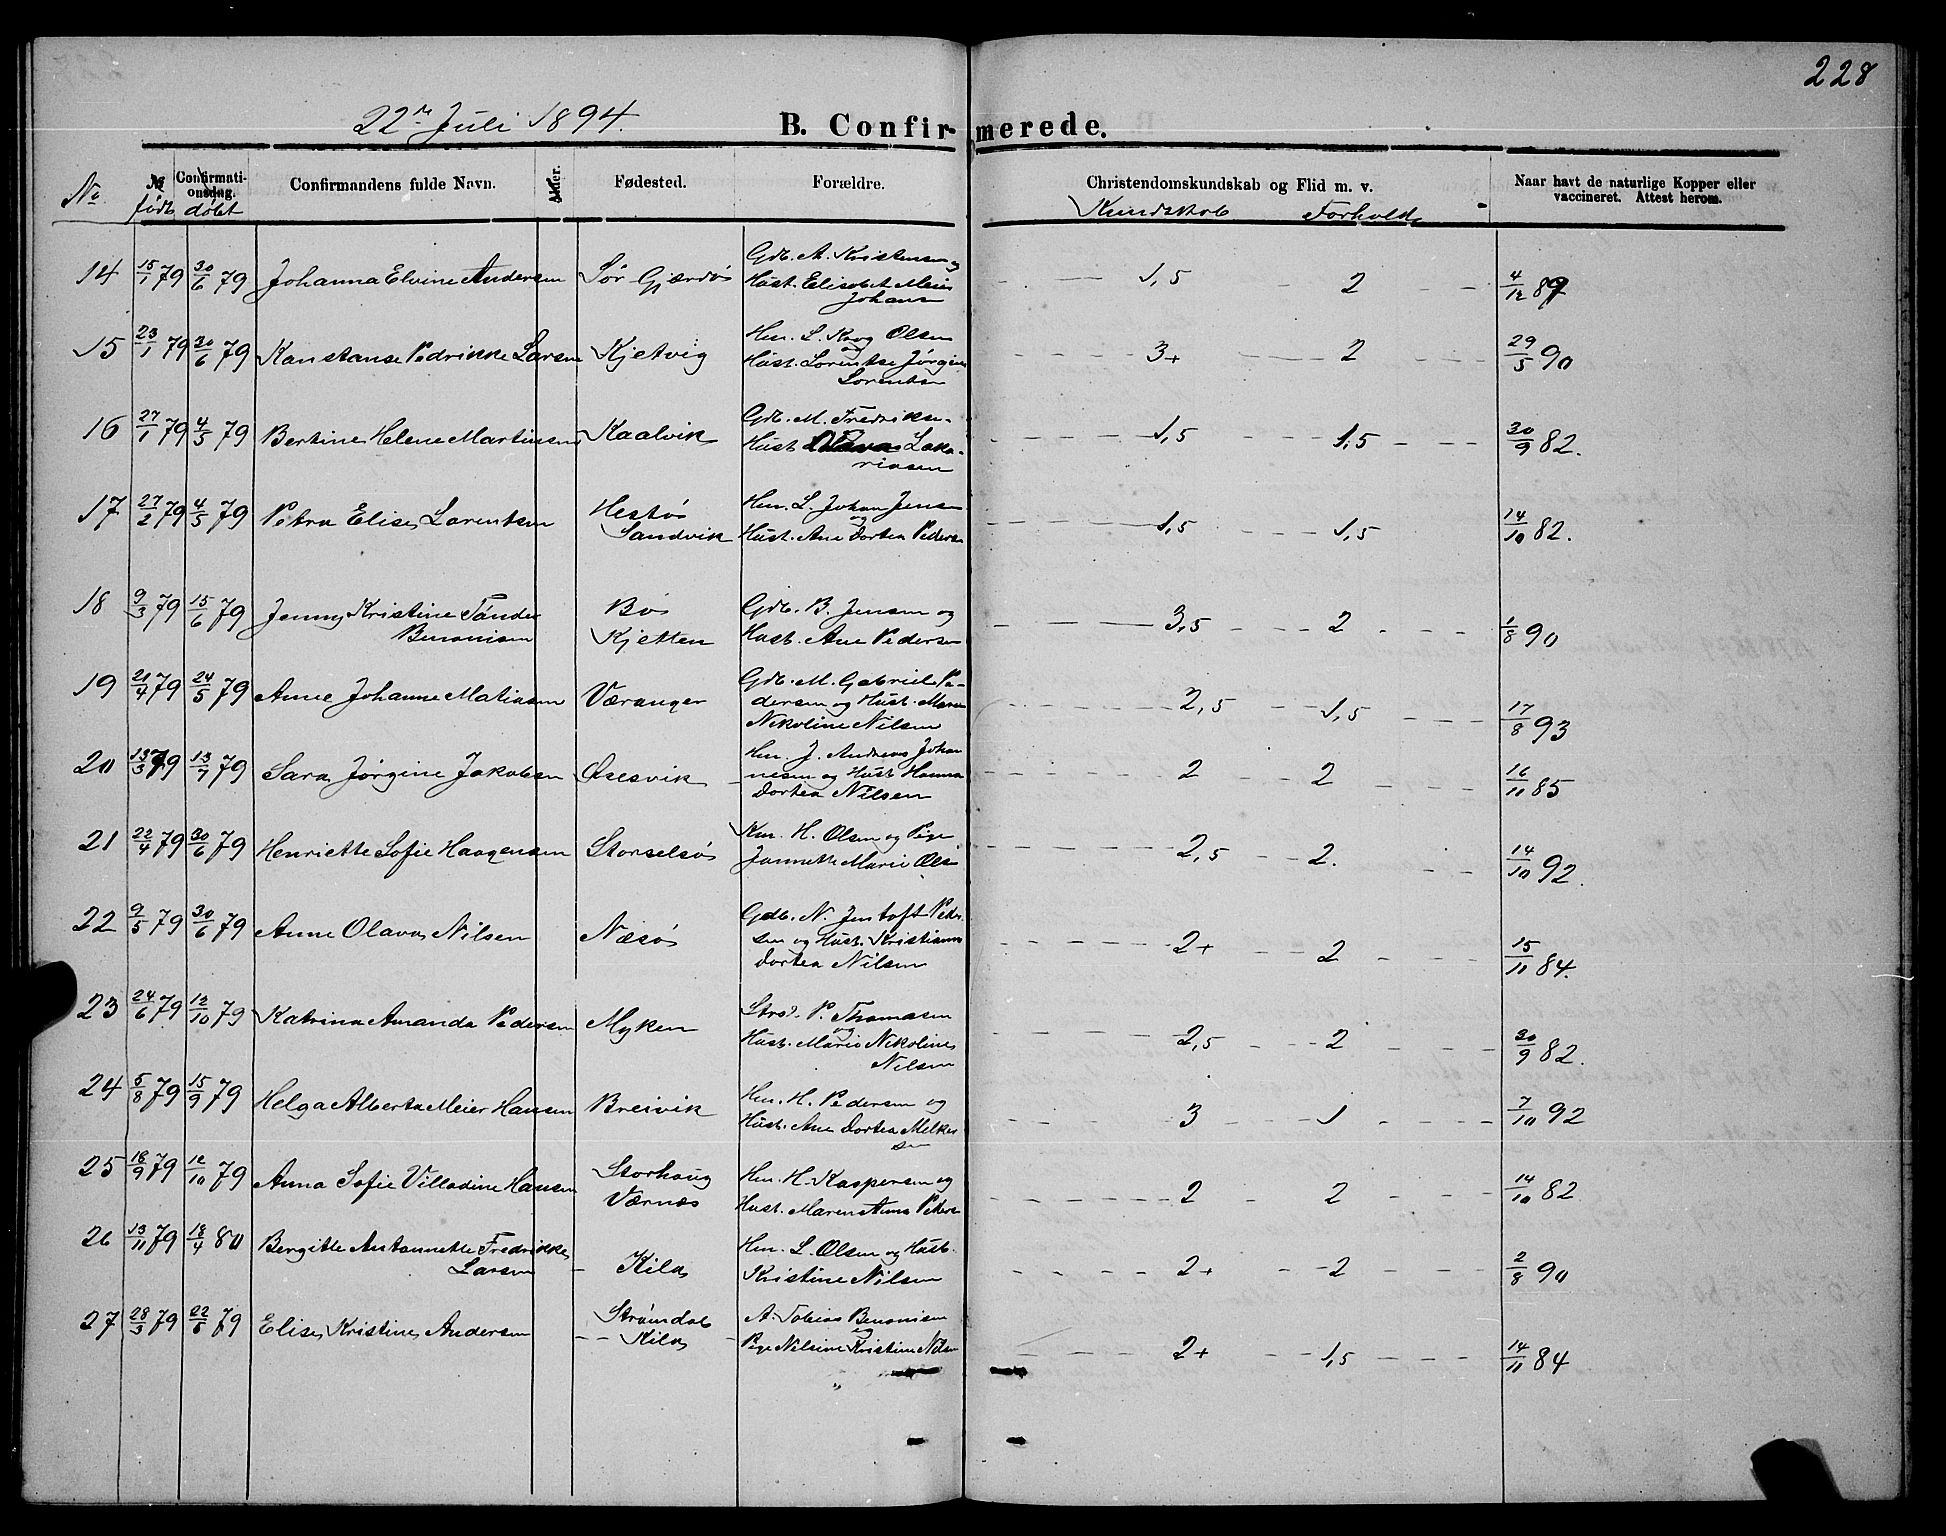 228
22de Juli 1894.
B. Confirmerede.
No № født Confirmationsdag. døbt Confirmandens fulde Navn. Alder. Fødested. Forældre. Christendomskundskab og Flid m. v. Kundskab Forhold Naar havt de naturlige Kopper eller vaccineret. Attest herom.
14 15/1 79 30/6 79 Johanna Elvine Andersen Sør Gjærøs Gdb. A. Kristensen og 1,5 2 4/12 89
Hust. Elisabet Meier
Johans
15 23/1 79 30/6 79 Konstanse Pedrikke Larsen Kjetvig Hm. L. Krog Olsen 3+ 2 29/5 90
og
Hust. Lorentse Jørgine
Lorentsen
16 27/1 79 4/5 79 Bertine Helene Martinsen Kaalvik Gdb. M. Fredriksen 1,5 1,5 30/9 82.
Hust. Olava Zaka-
riasen
17 27/2 79 4/5 79 Petra Elise Larentsen Hestøs Hm. L. Johan Jensen 1,5 1,5 14/10 82.
og
Sandvik Hust. Ane Dortea Pedersen
18 9/3 79 15/6 79 Jenny Kristine Tander Bø Gdb. B. Jensen og 3,5 2 1/8 90
Benonisen Kjetten Hust. Ane Pedersen
19 21/4 79 24/5 79 Anne Johanne Matiasen Væranger Gdb. M. Gabriel Pe- 2,5 1,5 17/8 93
dersen og Hust. Maren
Nikoline Nilsen
20 13/3 79 13/7 79 Sara Jørgine Jakobsen Øresvik Hm J. Andreas Johan 2 2 16/11 85
nesen og Hust Hanna
Dortea Nilsen
21 22/4 79 30/6 79 Henriette Sofie Haagensen Storselsøs Km. H. Olsen og Pige 2,5 2. 14/10 92.
Jannette Marie Ols
22 9/5 79 30/6 79 Anne Olava Nilsen Næsøs Gdb. N. Jentoft Peder- 2+ 2 15/11 84.
sen og Hust. Kristianna
Dortea Nilsen
23 24/6 79 12/10 79 Katrina Amanda Pedersen Myken Strs. P. Thomasen 2,5 2 30/9 82.
og
Hust. Marie Nikoline
Nilsen
24 5/8 79 15/9 79 Helga Alberta Meier Hansen Breivik Hm. H. Pedersen og 3 1 7/10 92
Hust. Ane Dortea Melker
sen
25 18/9 79 12/10 79 Anna Sofie Villadine Hansen Storhaug Hm. H. Kaspersen og 2 2 14/10 82
Værnæs Hust. Maren Anna Peders
26 13/11 79 18/4 80 Bergitte Antonnette Fredrikke Hm. L. Olsen og Hust.
Larsen Kila Kristine Nilsen 2+ 2 2/8 90
27 28/3 79 22/6 79 Elise Kristine Andersen Strømdal A. Tobias Benonisen
og
Kila Pige Nilsine Kristine Nilsen 2+ 1,5 14/11 84